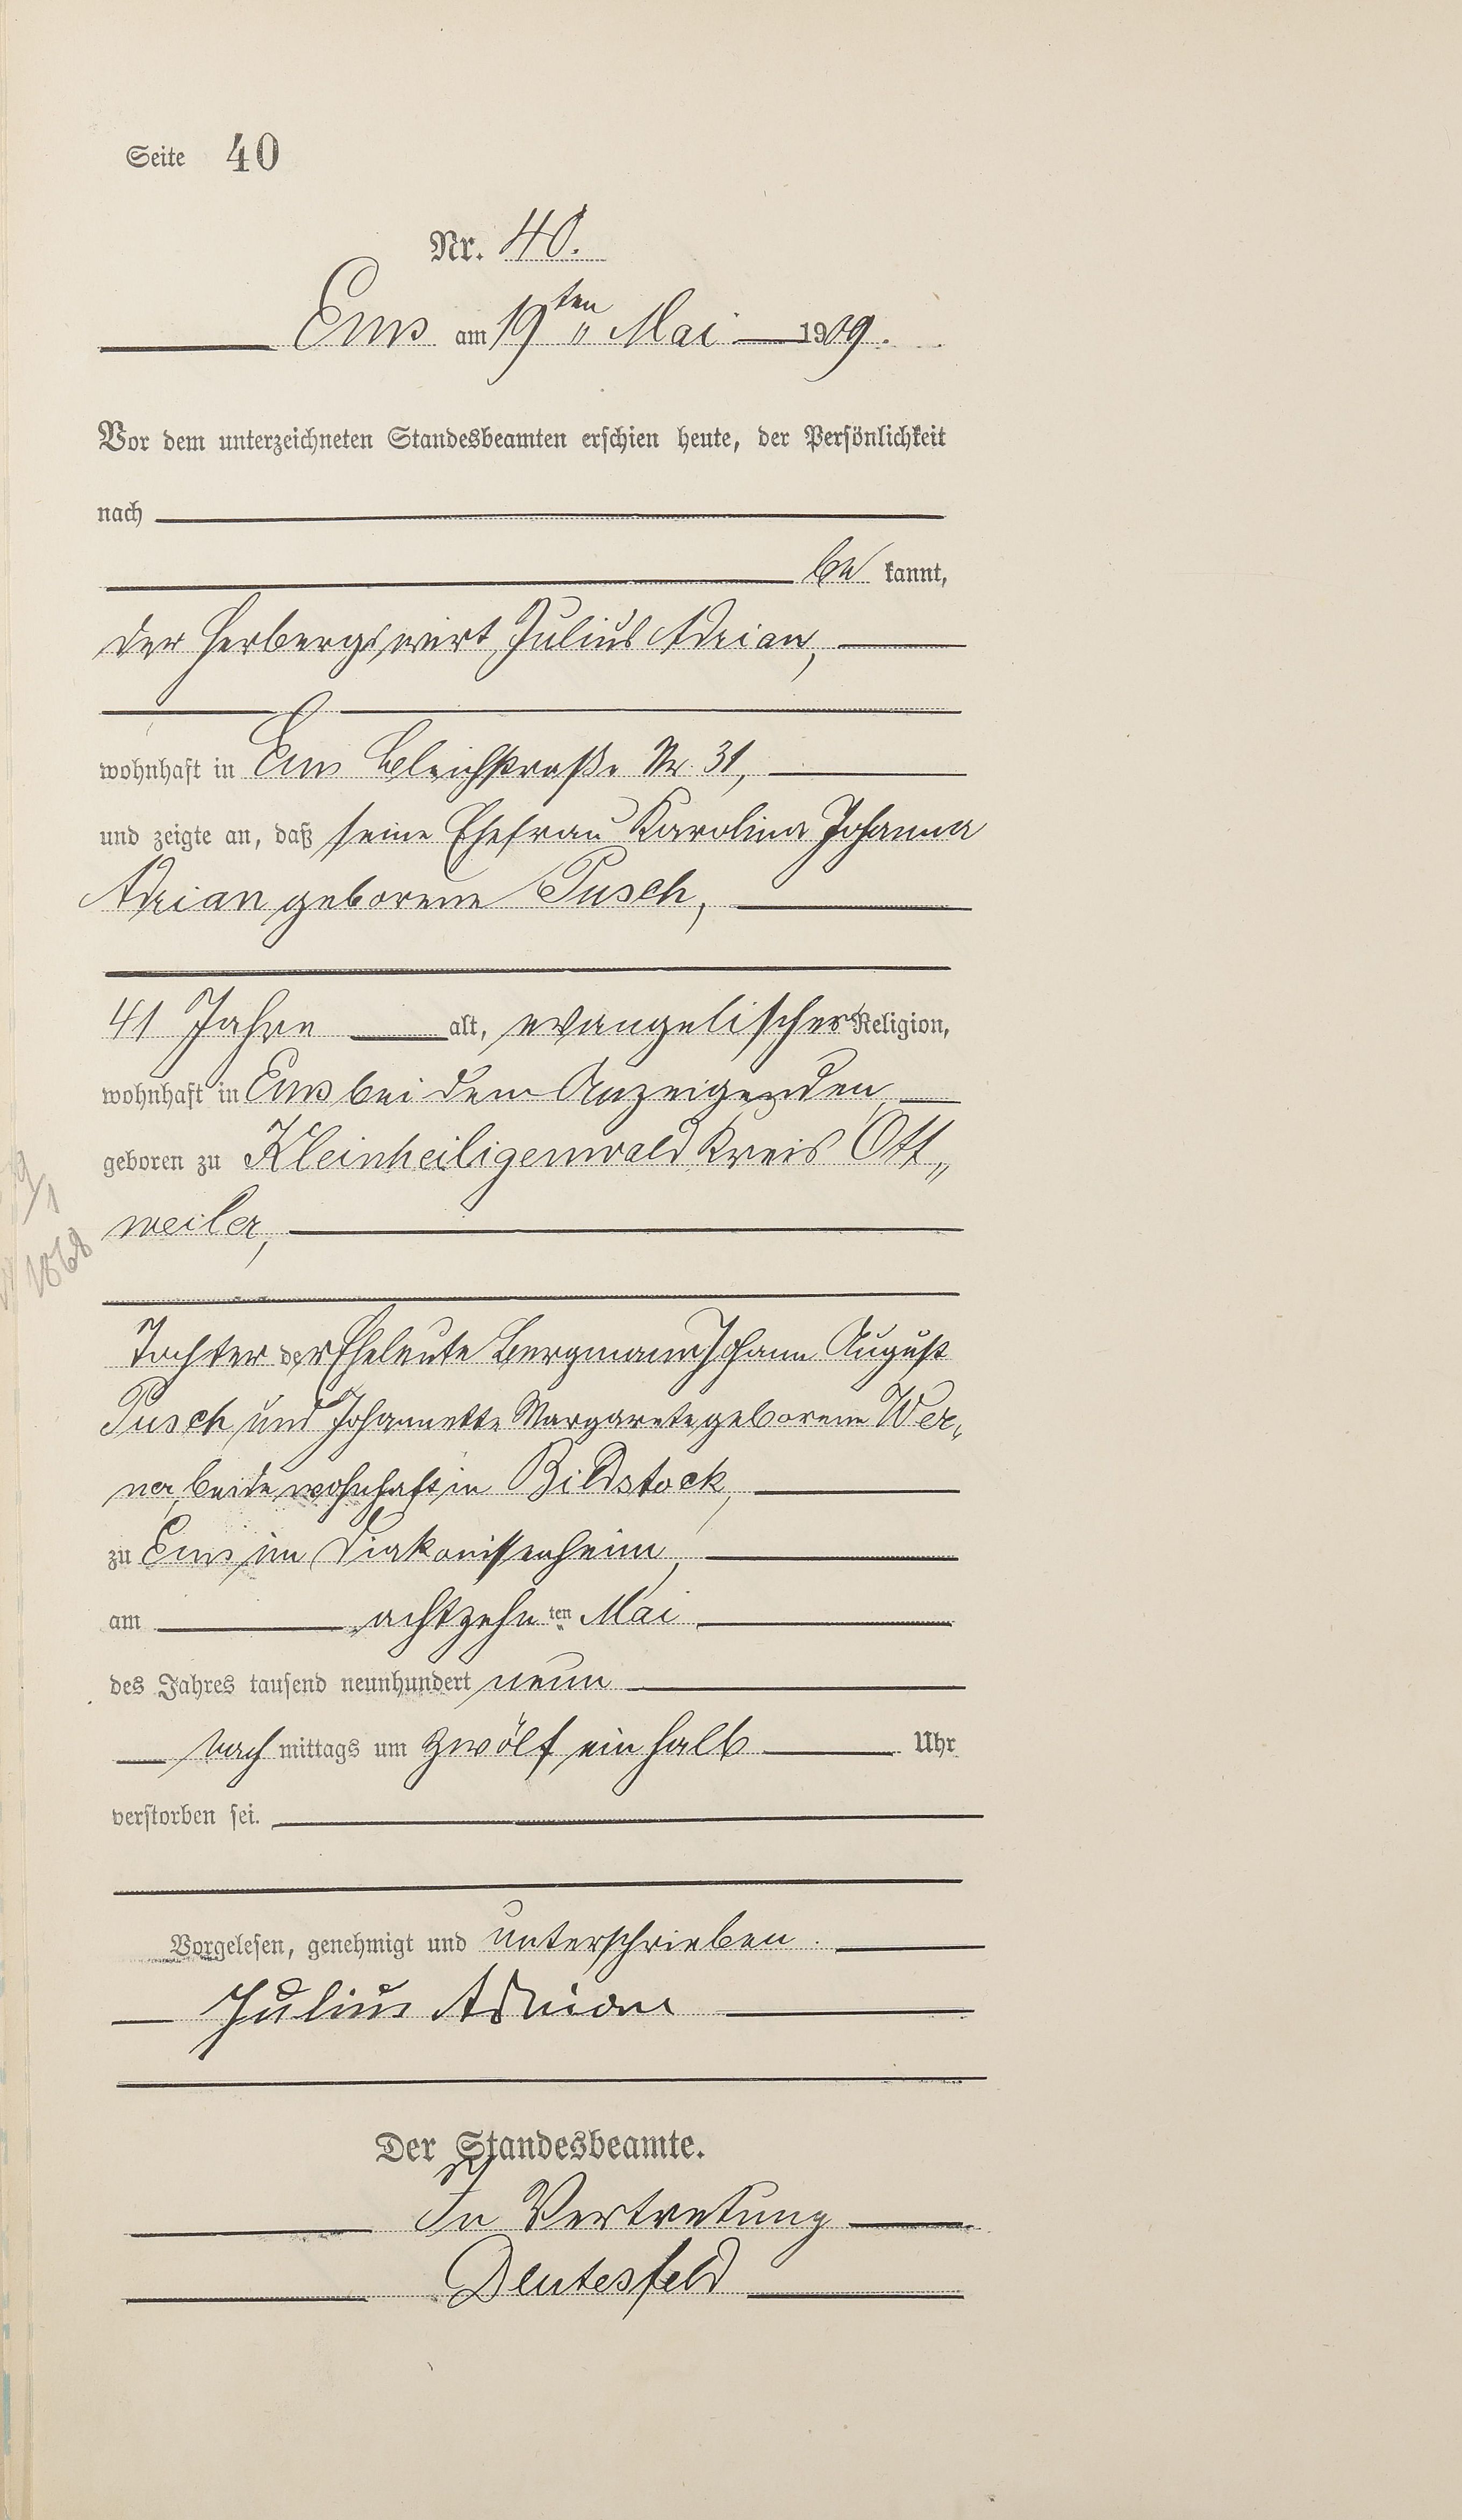 Seite 40
Nr. 40.
Ems am 19ten Mai 1909.
Vor dem unterzeichneten Standesbeamten erschien heute, der Persönlichkeit
nach
be kannt,
der Herbergswirt Julius Adrian,
wohnhaft in Ems Bleichstraße Nr. 31,
und zeigte an, daß seine Ehefrau Karolina Johanna
Adrian geborene Pusch,
41 Jahre alt, evangelischer Religion,
wohnhaft in Ems bei dem Anzeigenden,
geboren zu Kleinheiligenwald Kreis Ott„
weiler,
9/1
1868
Tochter der Eheleute Bergmann Johann August
Pusch und Johannette Margarete geborene Wer„
ner, beide wohnhaft in Bildstock,
zu Ems im Diakonissenheim,
am achtzehnten Mai
des Jahres tausend neunhundert neun
nach mittags um zwölf einhalb Uhr
verstorben sei.
Vorgelesen, genehmigt und unterschrieben.
Julius Adrian
Der Standesbeamte.
In Vertretung
Deutesfeld